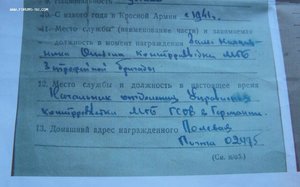 www.forums-su.com
10. С какого года в Красной Армии с 1941 г.
11. Место службы (наименование части) и занимаемая
должность в момент награждения Зам. Началь-
ника Отдела контрразведки МГБ
3 трофейной бригады
12. Место службы и должность в настоящее время
Начальник отделения Управления
контрразведки МГБ ГСОВ в Германии.
13. Домашний адрес награжденного Полевая
Почта 02475
(См. н/об.)